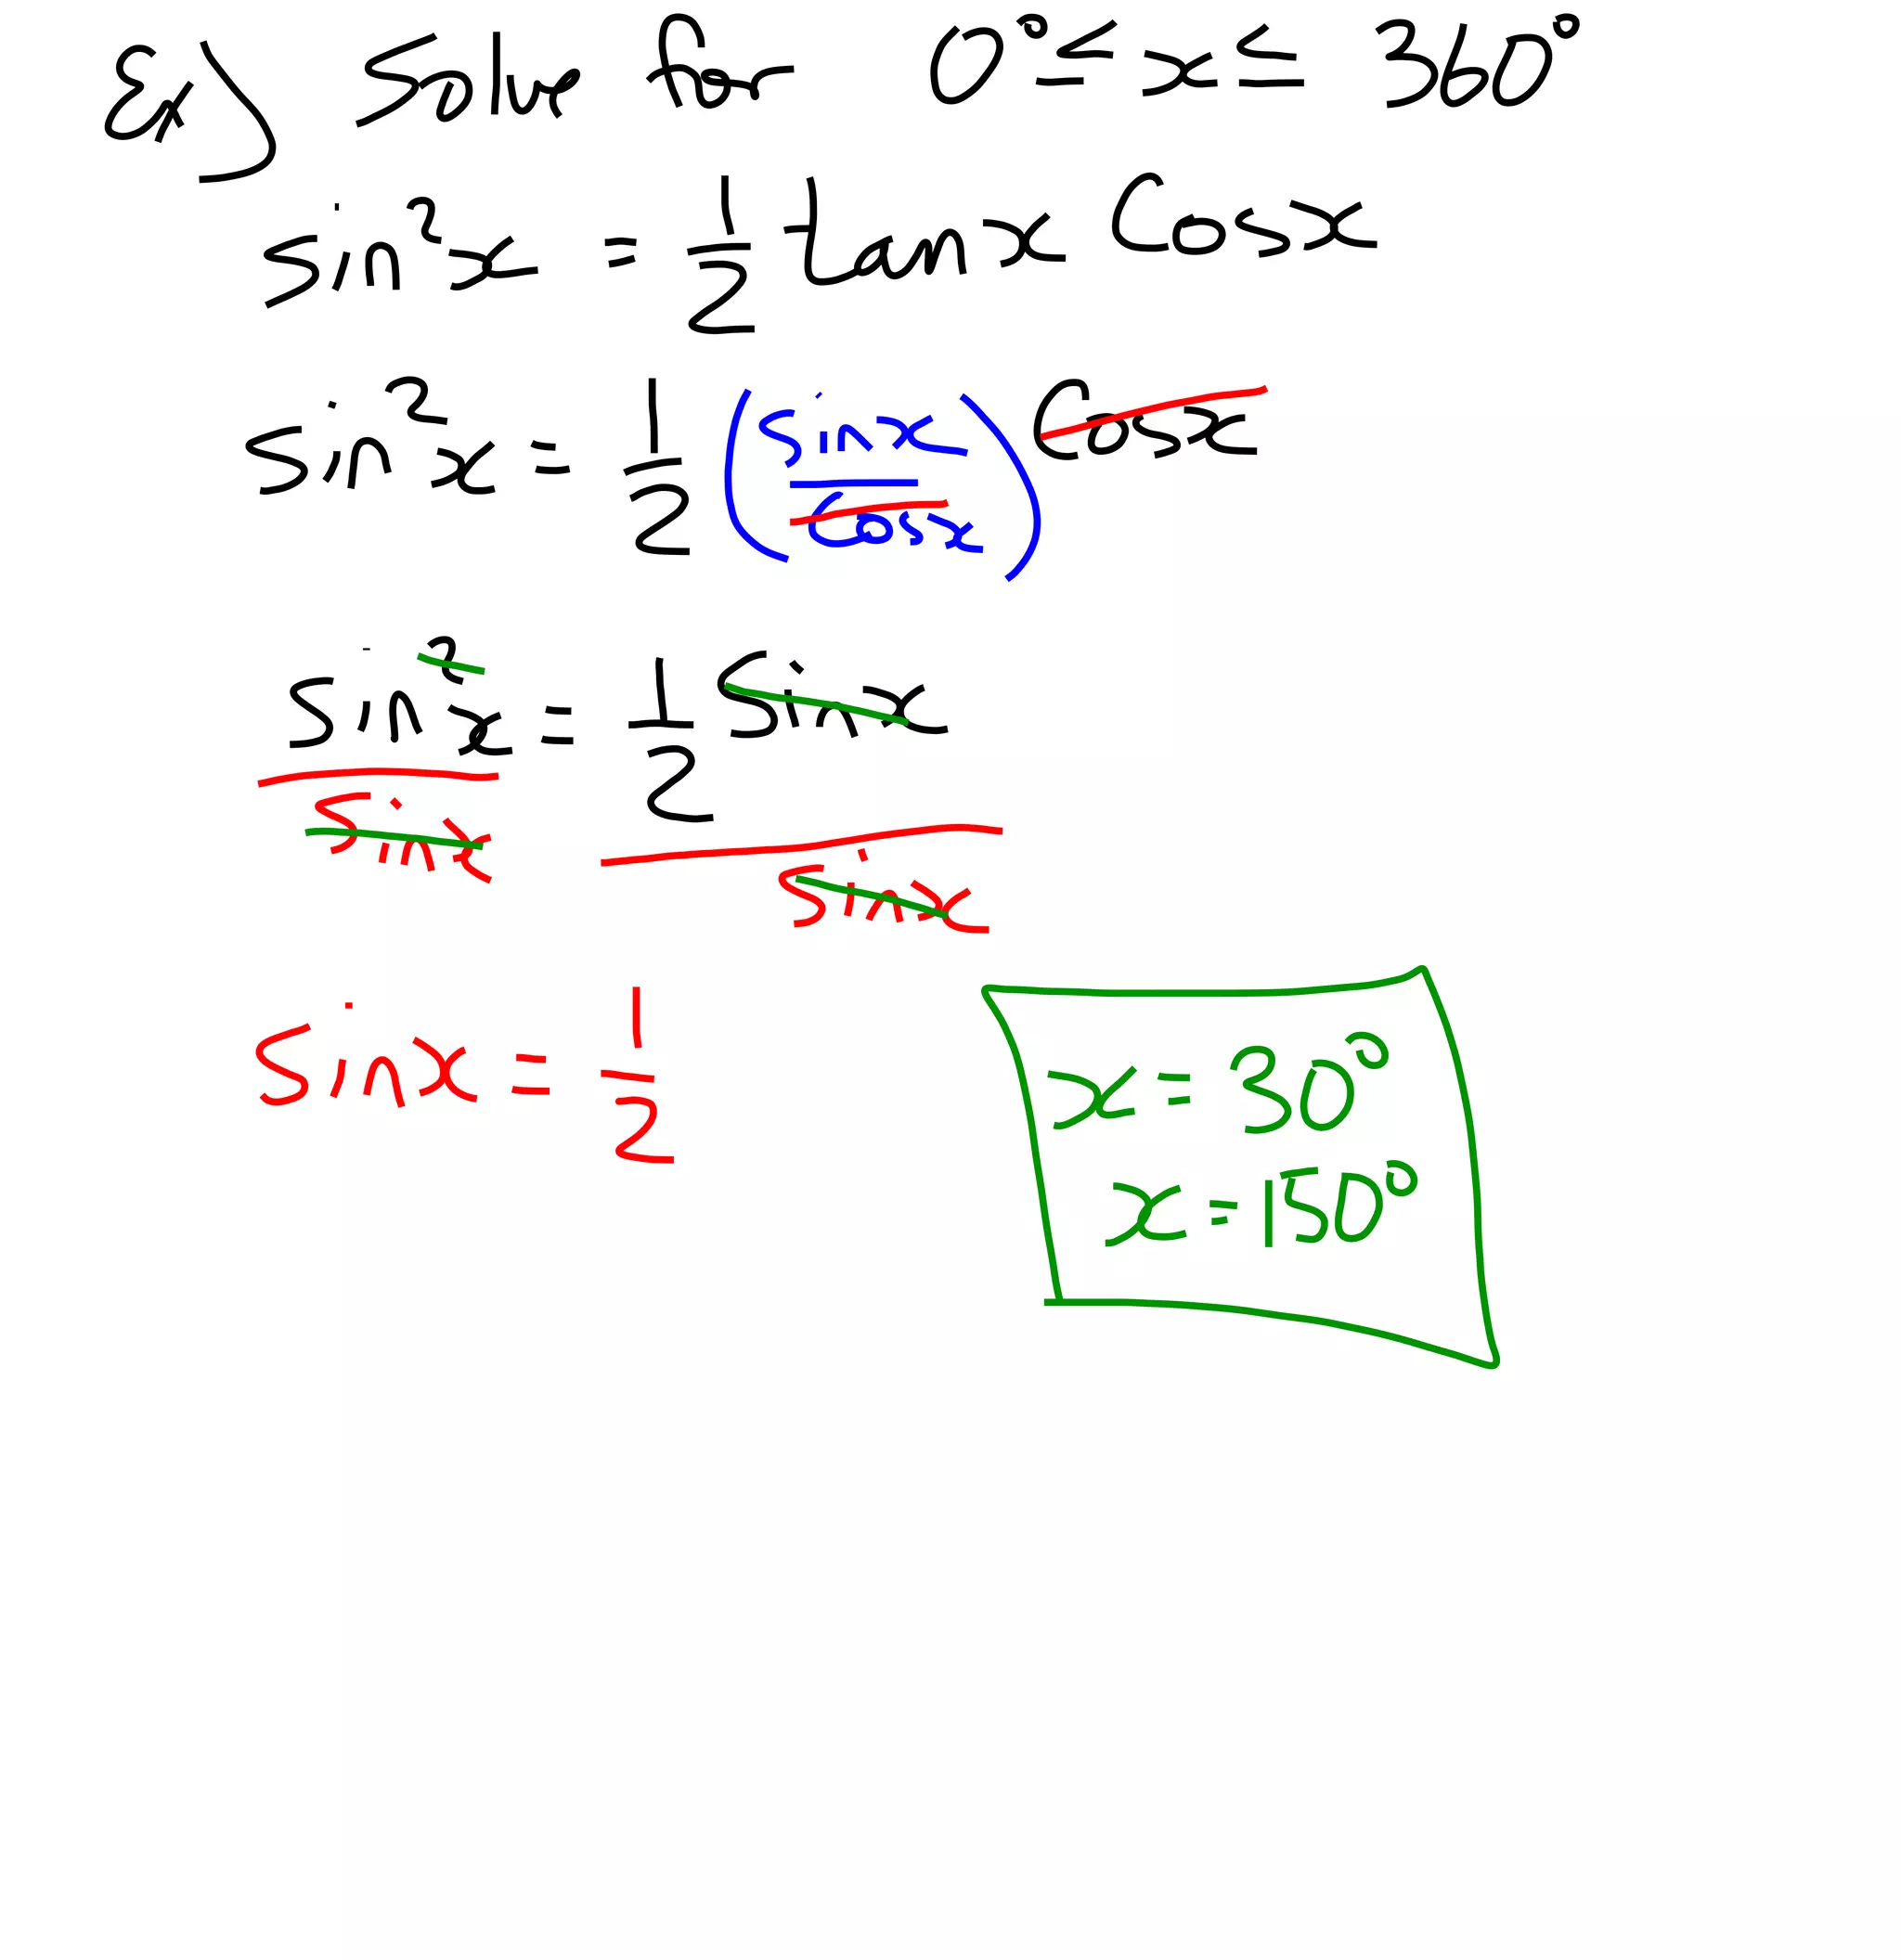 Ex) Solve for 0° ≤ x ≤ 360°
sin²x = 1/2 tanx Cosx
sin²x = 1/2 (sinx/Cosx) Cosx
sin²x/sinx = 1/2 Sinx/sinx
Sinx = 1/2
x = 30°
x = 150°